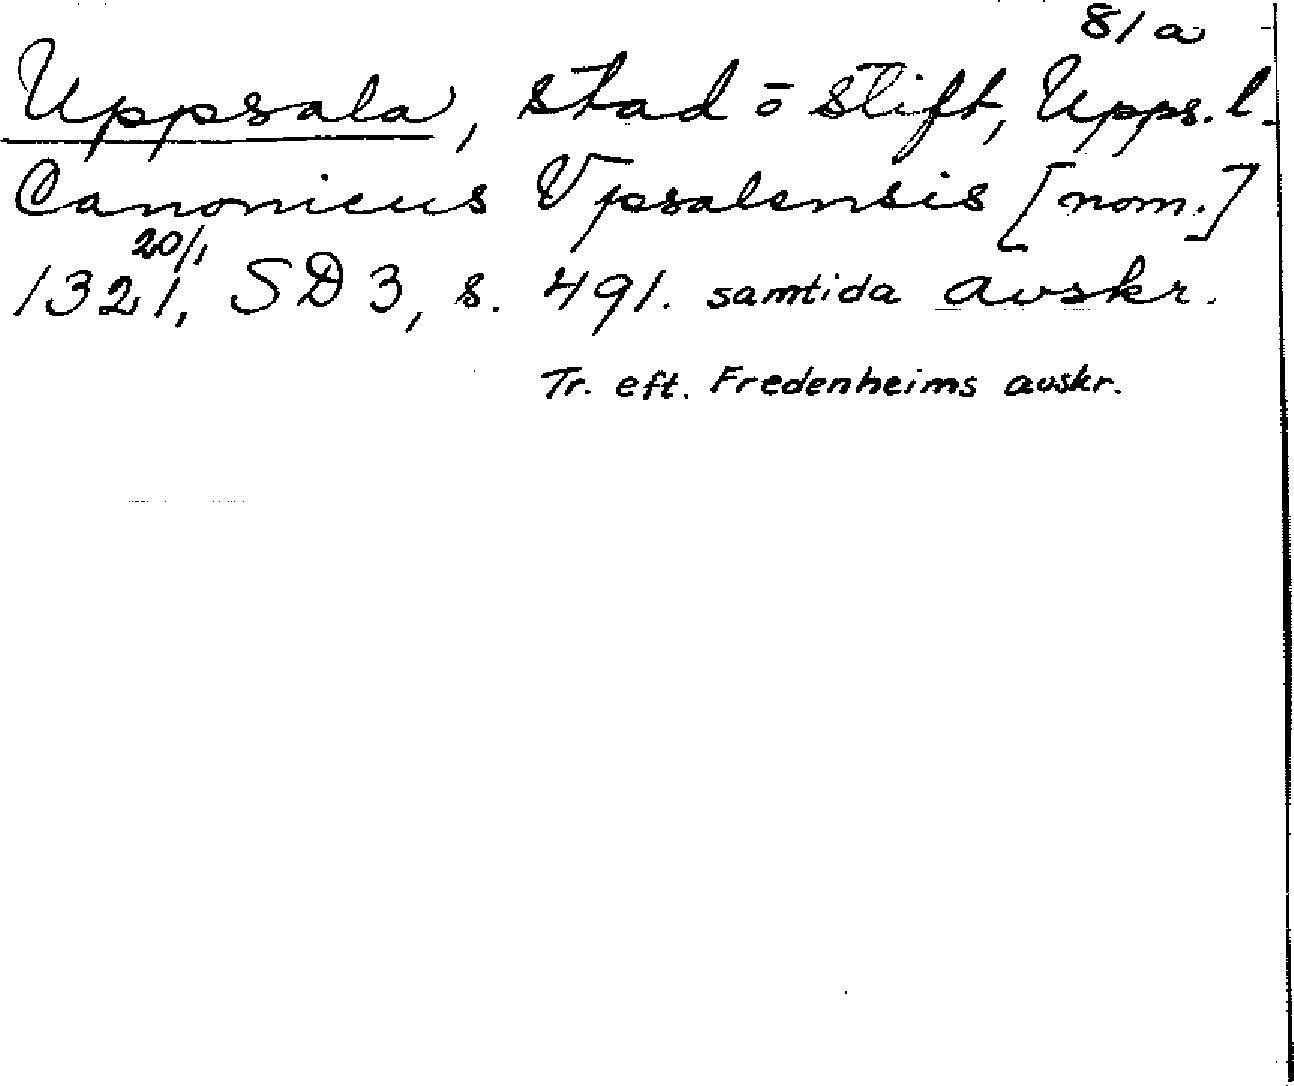 81a
Uppsala, stad o stift, Upps. l.
Canonicus Vpsalensis [nom.]
20/1
1321, SD 3, s. 491. samtida avskr.
Tr. eft. Fredenheims avskr.